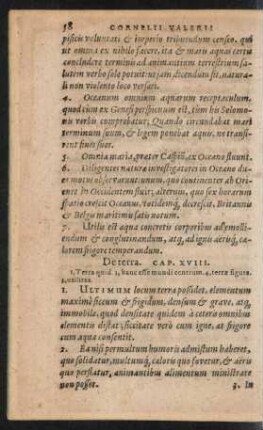 38 CORNELII VALERII
pificis voluntati & imperio tribuendum censeo, qui
ut omnia ex nihilo facere, ita & maris aquas certis
concludere terminis ad animantium terrestrium sa-
lutem verbo solo potuit: ut jam dicendum sit, natura-
li non violento loco versari.
4. Oceanum omnium aquarum receptaculum,
quod cum ex Genesi perspicuum est, tum his Salomo-
nis verbis comprobatur, Quando circundabat mari
terminum suum, & legem ponebat aquis, ne transi-
rent fines suos.
5. Omnia maria, præter Caspiū, ex Oceano fluunt.
6. Diligentes naturæ investigatores in Oceano du-
os motus observarunt: unum, quo continenter ab Ori-
ente in Occidentem fluit; alterum, quo sex horarum
spatio crescit Oceanus, totidemq́; decrescit, Britannis
& Belgis maritimis satis notum.
7. Utilis est aqua concretis corporibus ad gemellē-
dis & conglutinandum, atq́; ad ignis aërisq́; ca-
lorem frigore temperandum.
De terra. CAP. XVIII.
1. Terra quid 2. hanc esse mundi centrum. 4. terræ figura.
5. utilitas
1. ULTIMUM locum terra possidet, elementum
maximè siccum & frigidum, densum & grave, atq́;
immobile, quod densitate quidem à ceteris omnibus
elementis distat, siccitate verò cum igne, at frigore
cum aqua consentit.
2. Ea nisi permultum humoris admistum haberet,
quo solidatur, multumq́; caloris quo fovetur, & aëris
quo perflatur, animantibus alimentum ministrare
non posset. 3. In